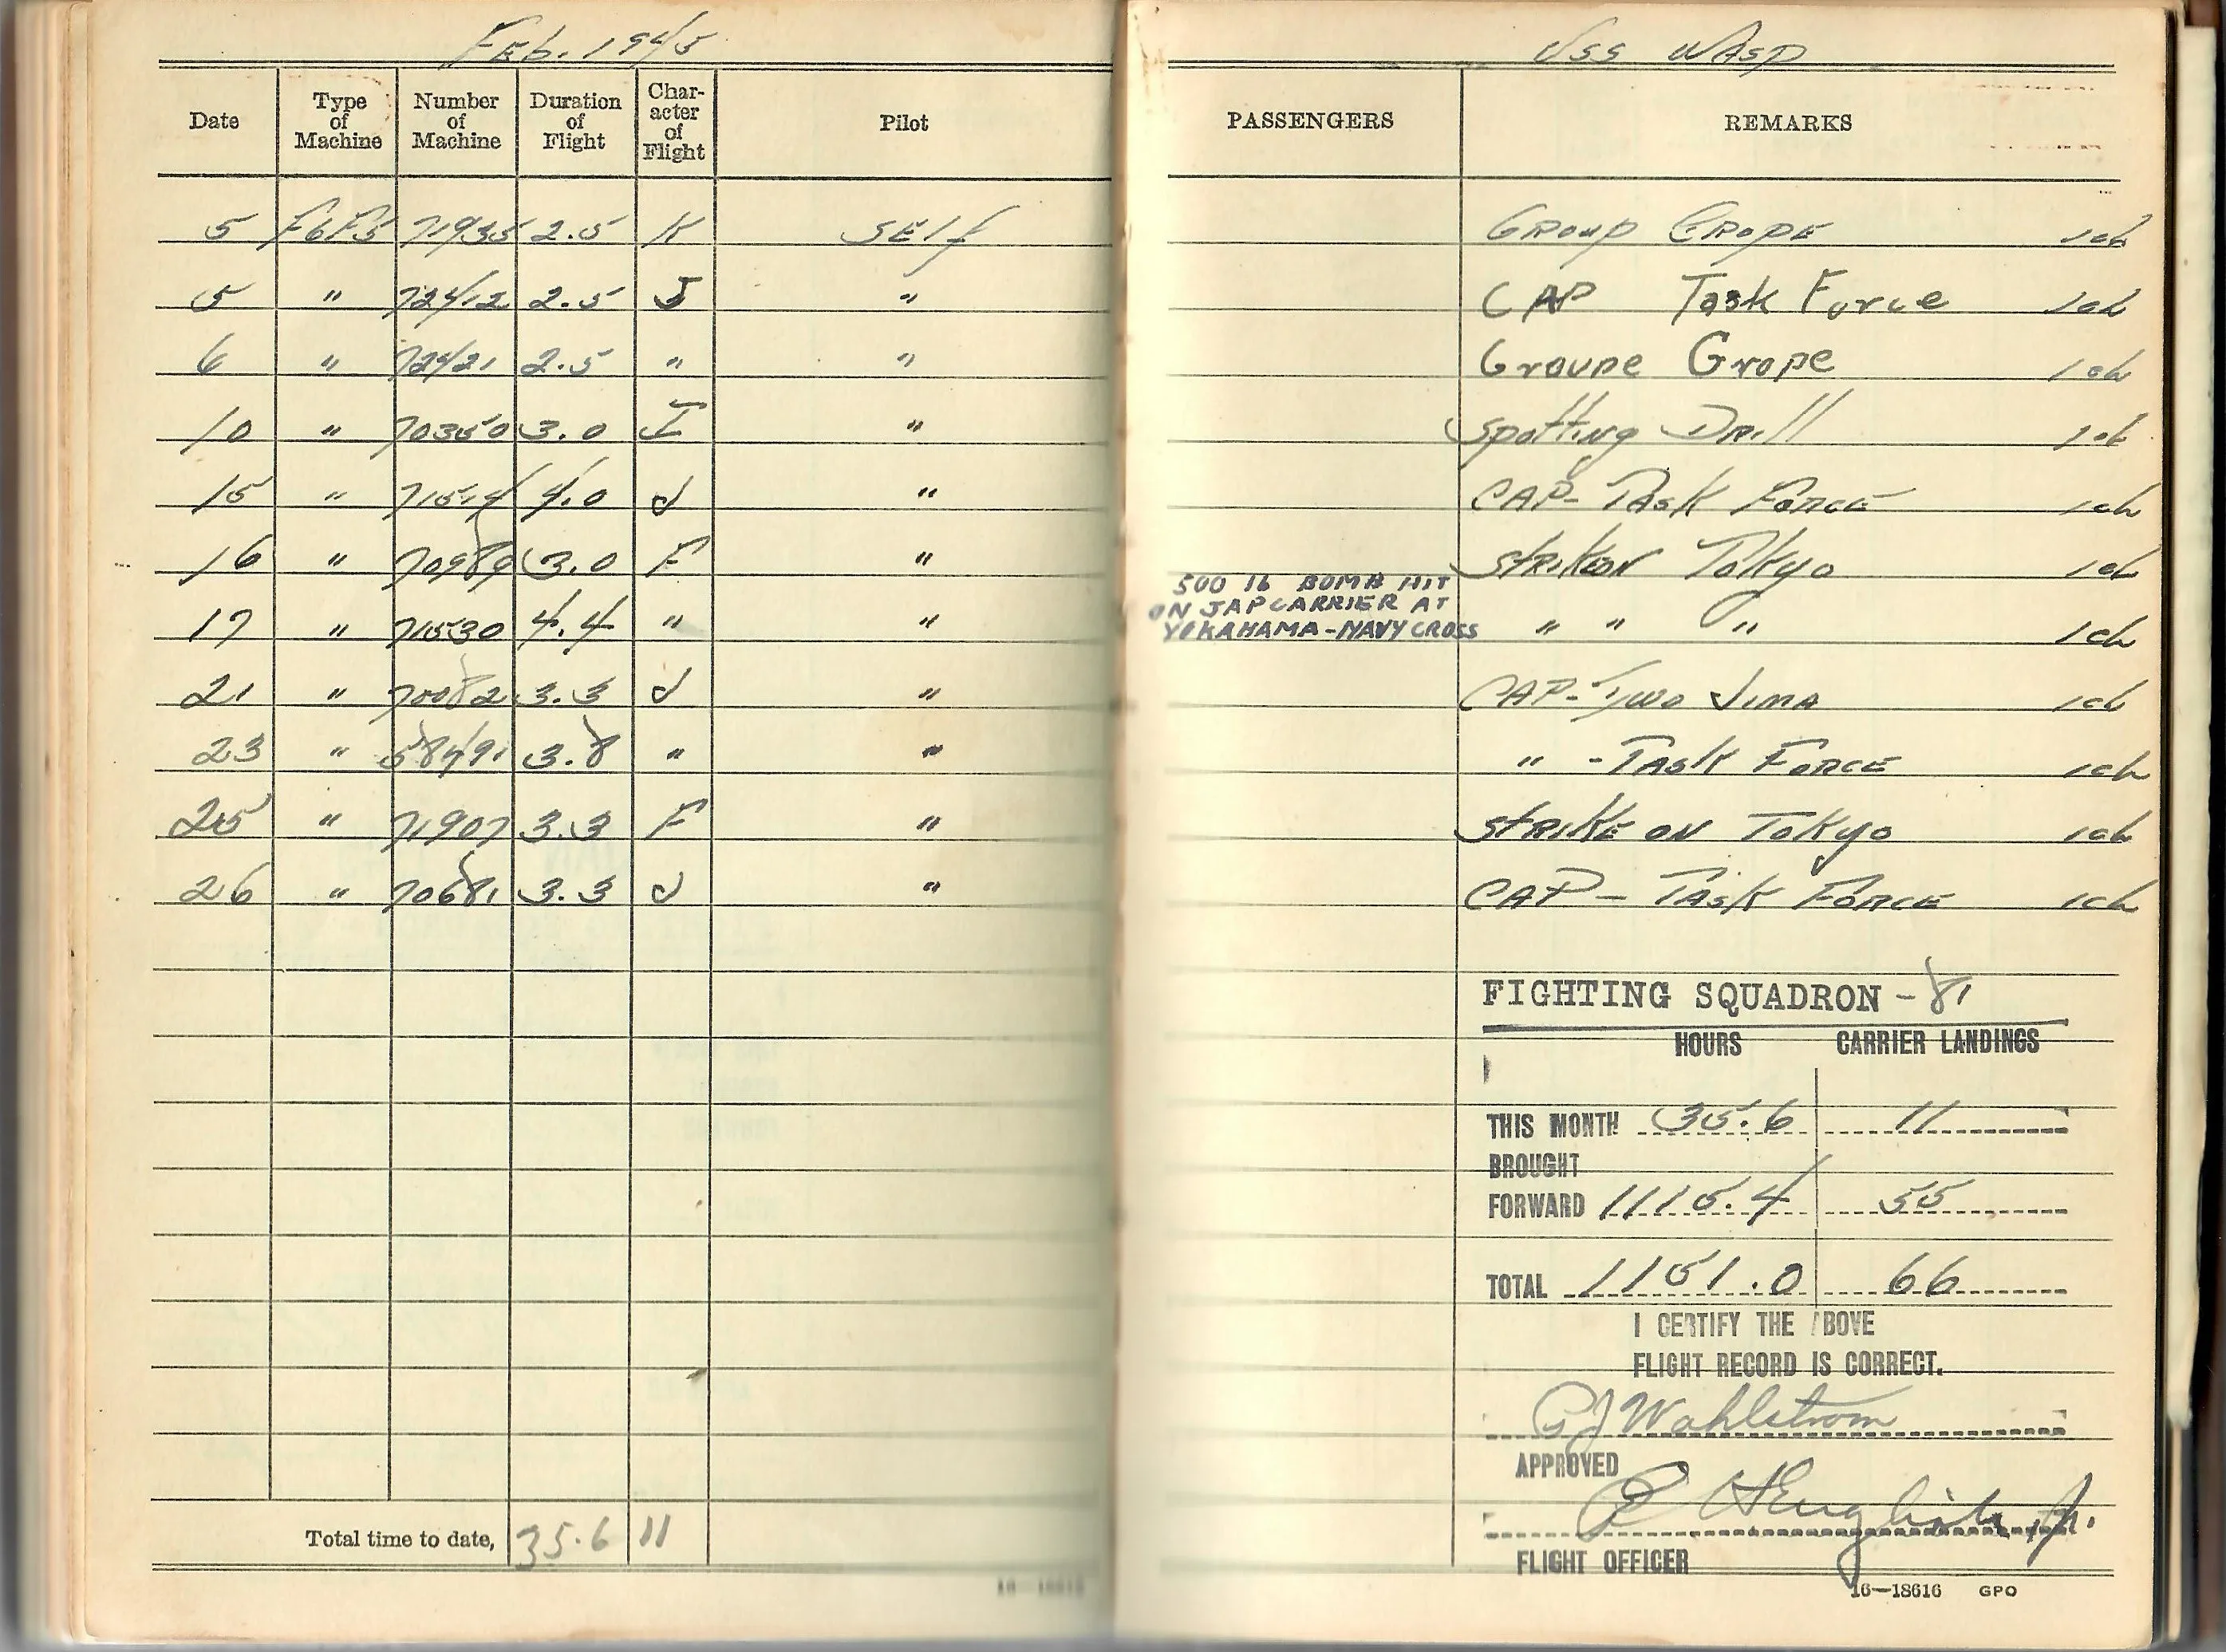 Feb. 1945
USS WASP
Date Type of Machine Number of Machine Duration of Flight Character of Flight Pilot PASSENGERS REMARKS
5 F6F5 71935 2.5 K SElf GRoup GROPE 1cL
5 " 72412 2.5 J " CAP Task Force 1cL
6 " 72421 2.5 " " Groupe Grope 1cL
10 " 70350 3.0 I " Spotting DRill 1cL
15 " 71514 4.0 J " CAP-TASK FORCE 1cL
16 " 70989 3.0 F " STRIKE ON Tokyo 1cL
500 lb BOMB HIT
ON JAP CARRIER AT
YOKAHAMA-NAVY CROSS
17 " 71530 4.4 " " " " " 1cL
21 " 70082 3.3 J " CAP-Iwo Jima 1cL
23 " 58491 3.8 " " " -TASK FORCE 1cL
25 " 71907 3.3 F " STRIKE ON TOKyo 1cL
26 " 70681 3.3 J " CAP - TASK FORCE 1cL
FIGHTING SQUADRON -81
HOURS CARRIER LANDINGS
THIS MONTH 35.6 11
BROUGHT
FORWARD 1115.4 55
TOTAL 1151.0 66
I CERTIFY THE ABOVE
FLIGHT RECORD IS CORRECT.
GJ Wohlstrom
APPROVED
English, Jr.
Total time to date, 35.6 11
FLIGHT OFFICER
16—18616 GPO